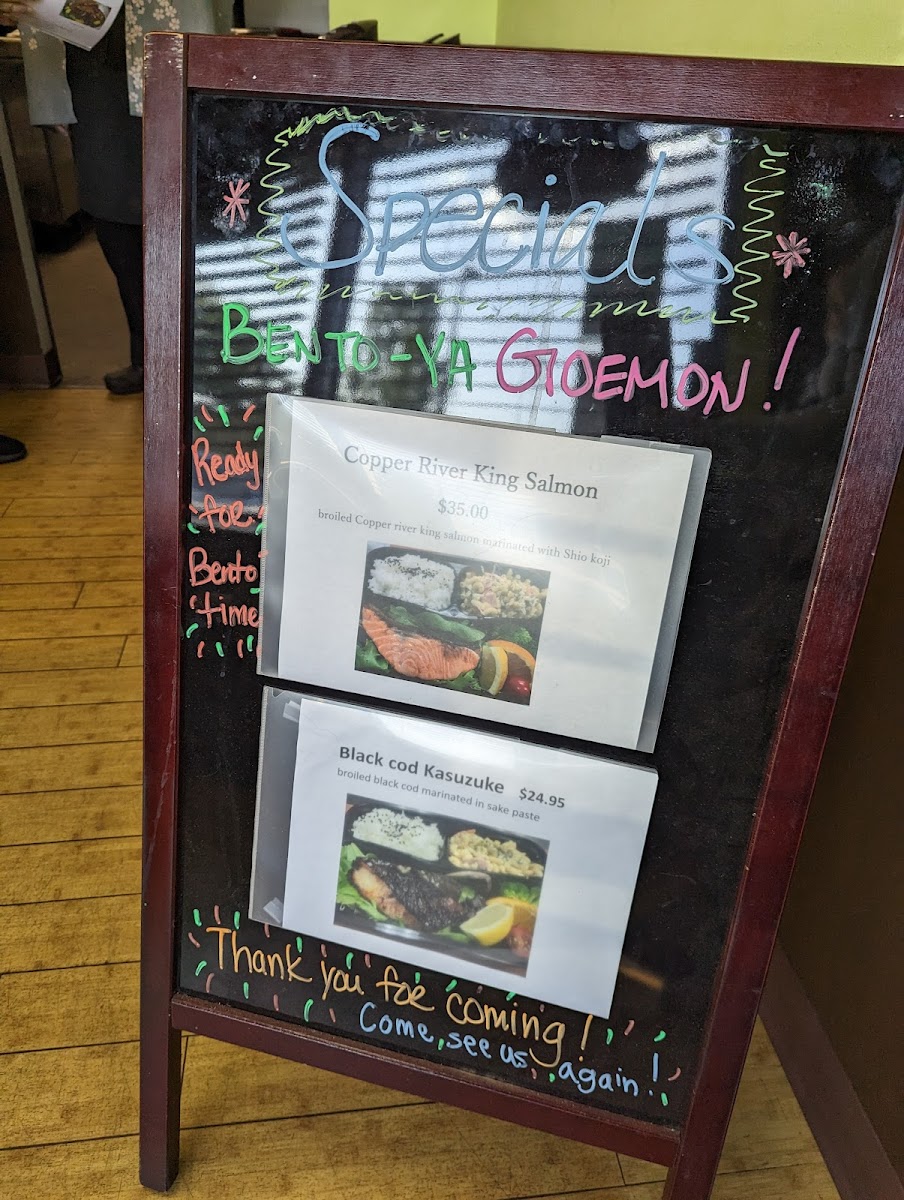 Specials
BENTO-YA GOEMON!
Ready
for
Bento
time
Copper River King Salmon
$35.00
broiled Copper river king salmon marinated with Shio koji
Black cod Kasuzuke $24.95
broiled black cod marinated in sake paste
Thank you for coming!
Come see us again!